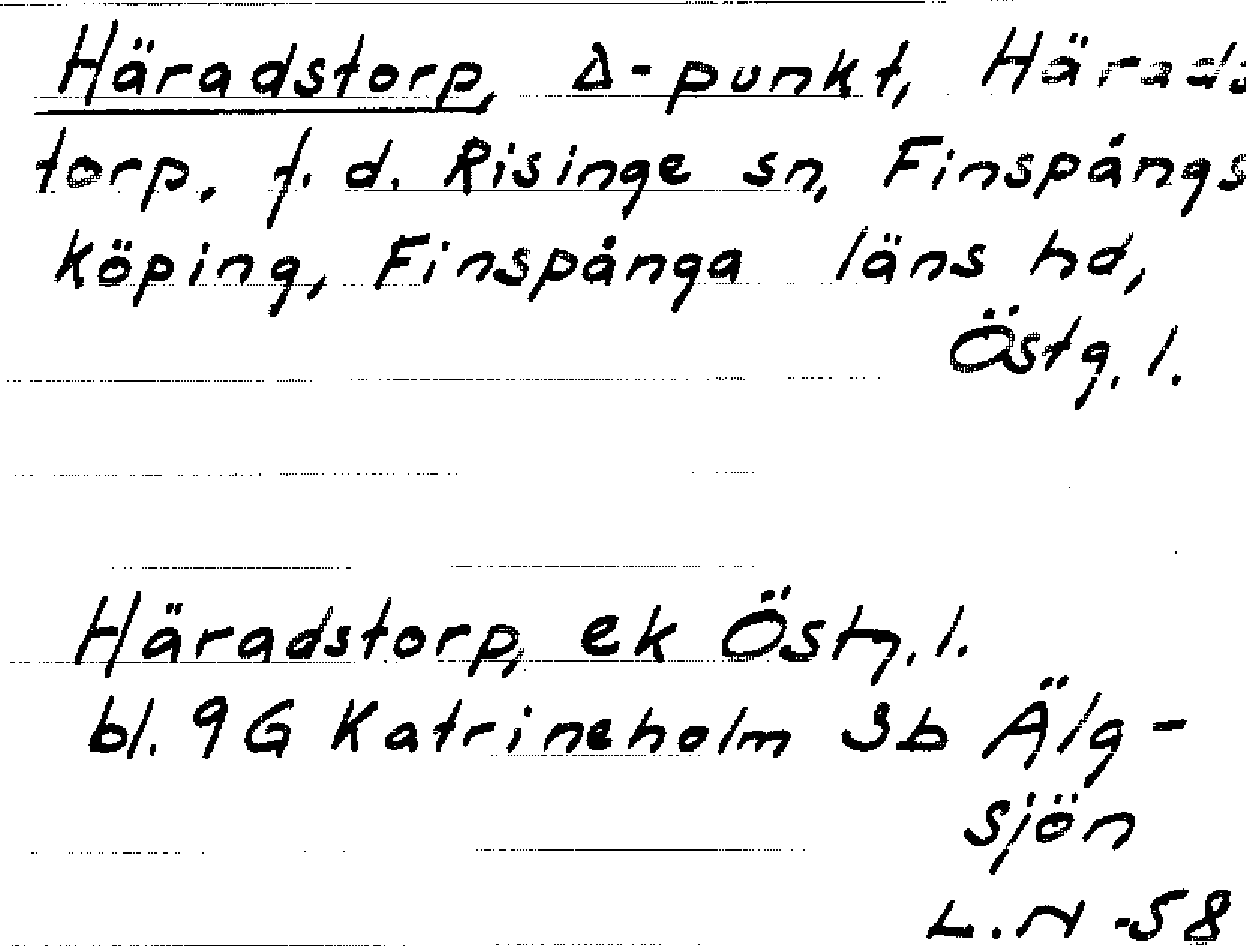 Häradstorp, Δ-punkt, Härads
torp. f. d. Risinge sn, Finspångs
köping, Finspånga läns hd,
Östg. l.
Häradstorp, ek Östg. l.
bl. 9G Katrineholm 3b Älg-
sjön
L. N -58